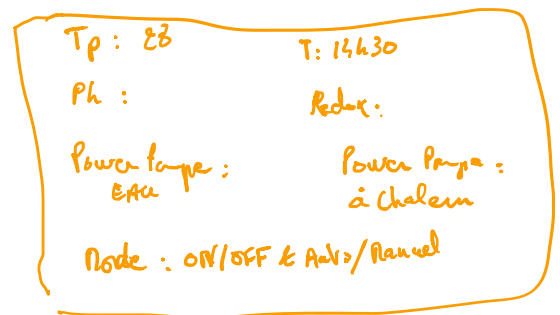 Tp : 28 T: 14h30
Ph : Redox :
Power Pompe : Power Pompe :
EAU à Chaleur
Mode : ON/OFF & Auto/Manuel